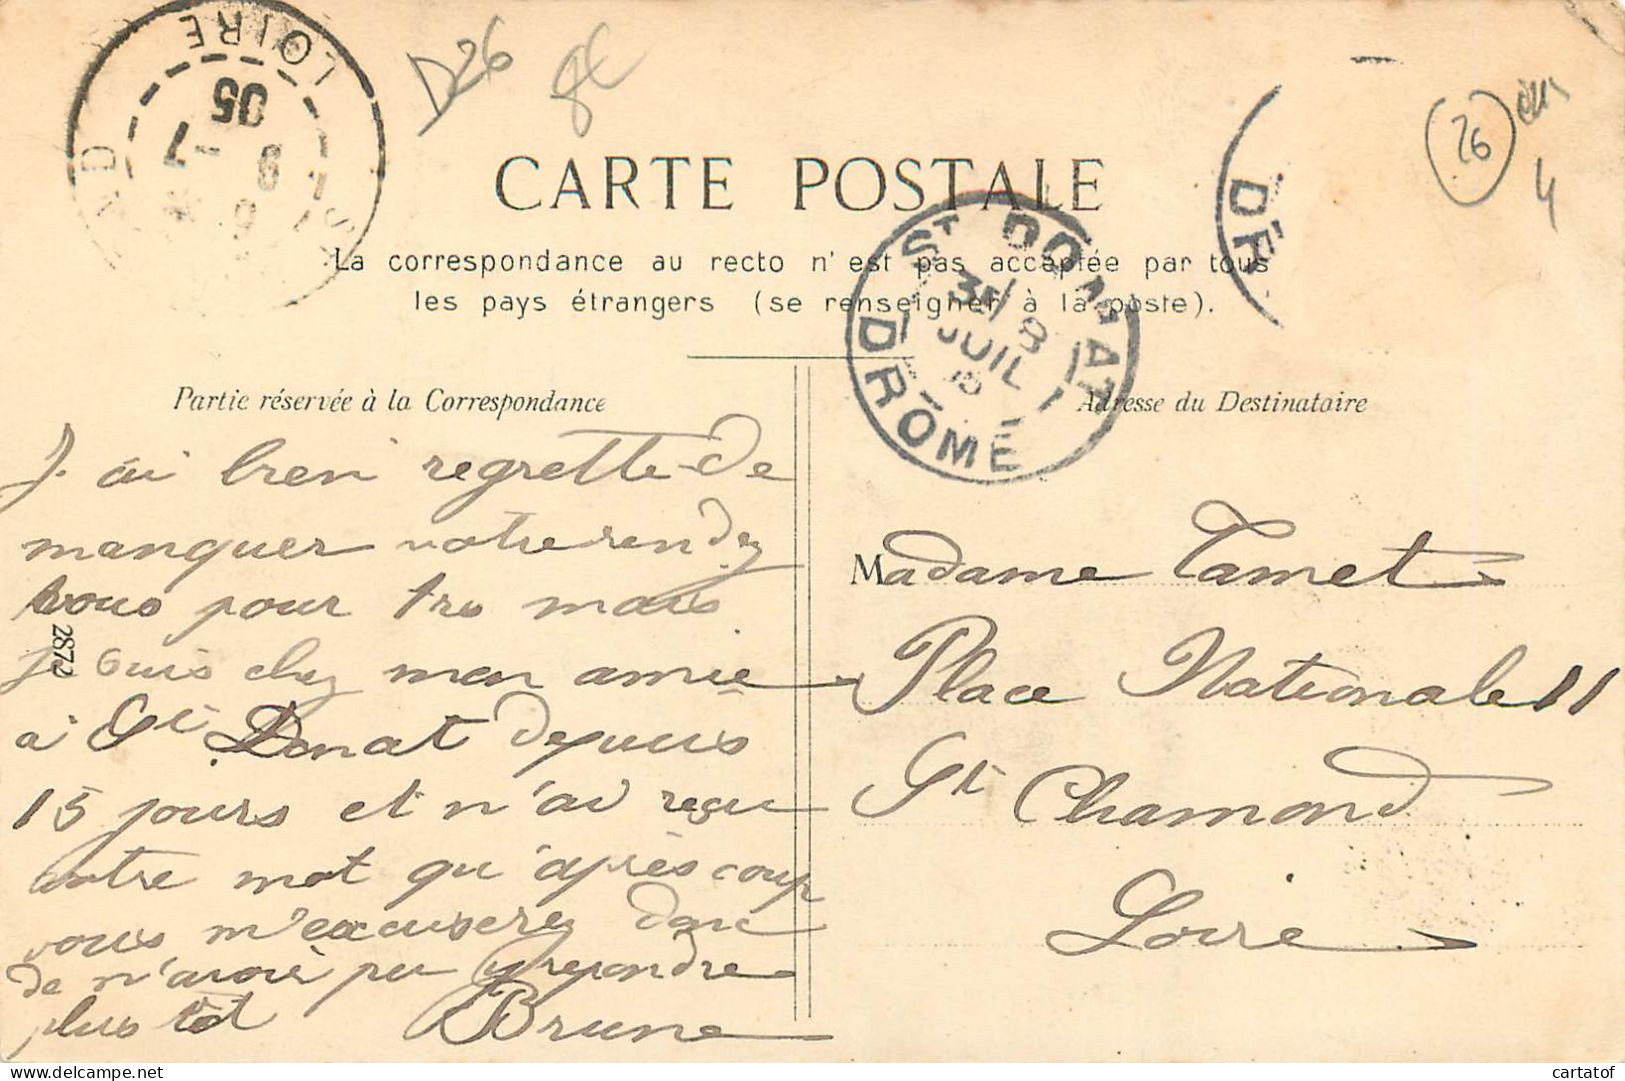 D26
8€
26
4
LOIRE
9 -7
05
CARTE POSTALE
La correspondance au recto n'est pas acceptée par tous
les pays étrangers (se renseigner à la poste).
ST DONAT
8
JUIL
DRÔME
DR
Partie réservée à la Correspondance
J'ai bien regretté de
manquer votre rendez
vous pour tro mais
je suis chez mon amie
à St Donat depuis
15 jours et n'ai reçu
votre mot qu'après coup
vous m'excuserez donc
de n'avoir pu y repondre
plus tôt Brune
2872
Adresse du Destinataire
Madame Tamet
Place Nationale 11
St Chamond
Loire
cartatof